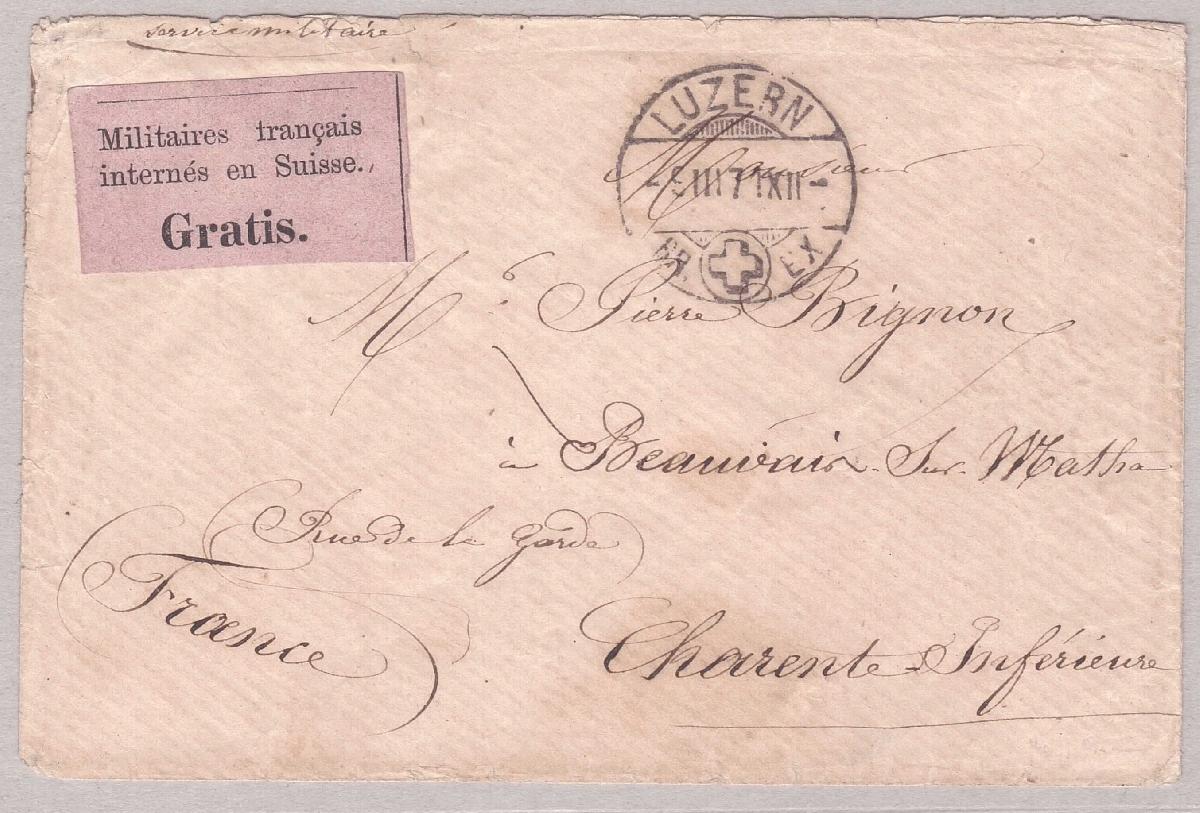 service militaire
Militaires français
internés en Suisse.
Gratis.
LUZERN
- 5 III 71 XII -
BR. EX.
Monsieur
Mr Pierre Brignon
à Beauvais-Sur-Matha
Rue de la Garde
France
Charente-Inférieure